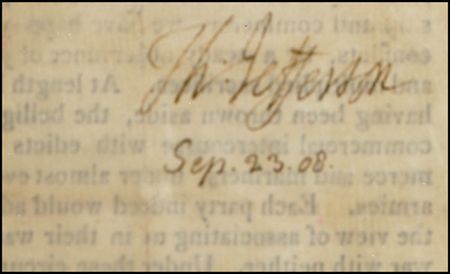 and comm we have happ
conflicts,
Th. Jefferson
and At length
having been thrown aside, the bellig
commercial intercourse with edicts
Sep. 23. 08.
merce and mariners, under almost eve
armies. Each party indeed would ad
the view of associating us in their wa
war with neither. Under these circu